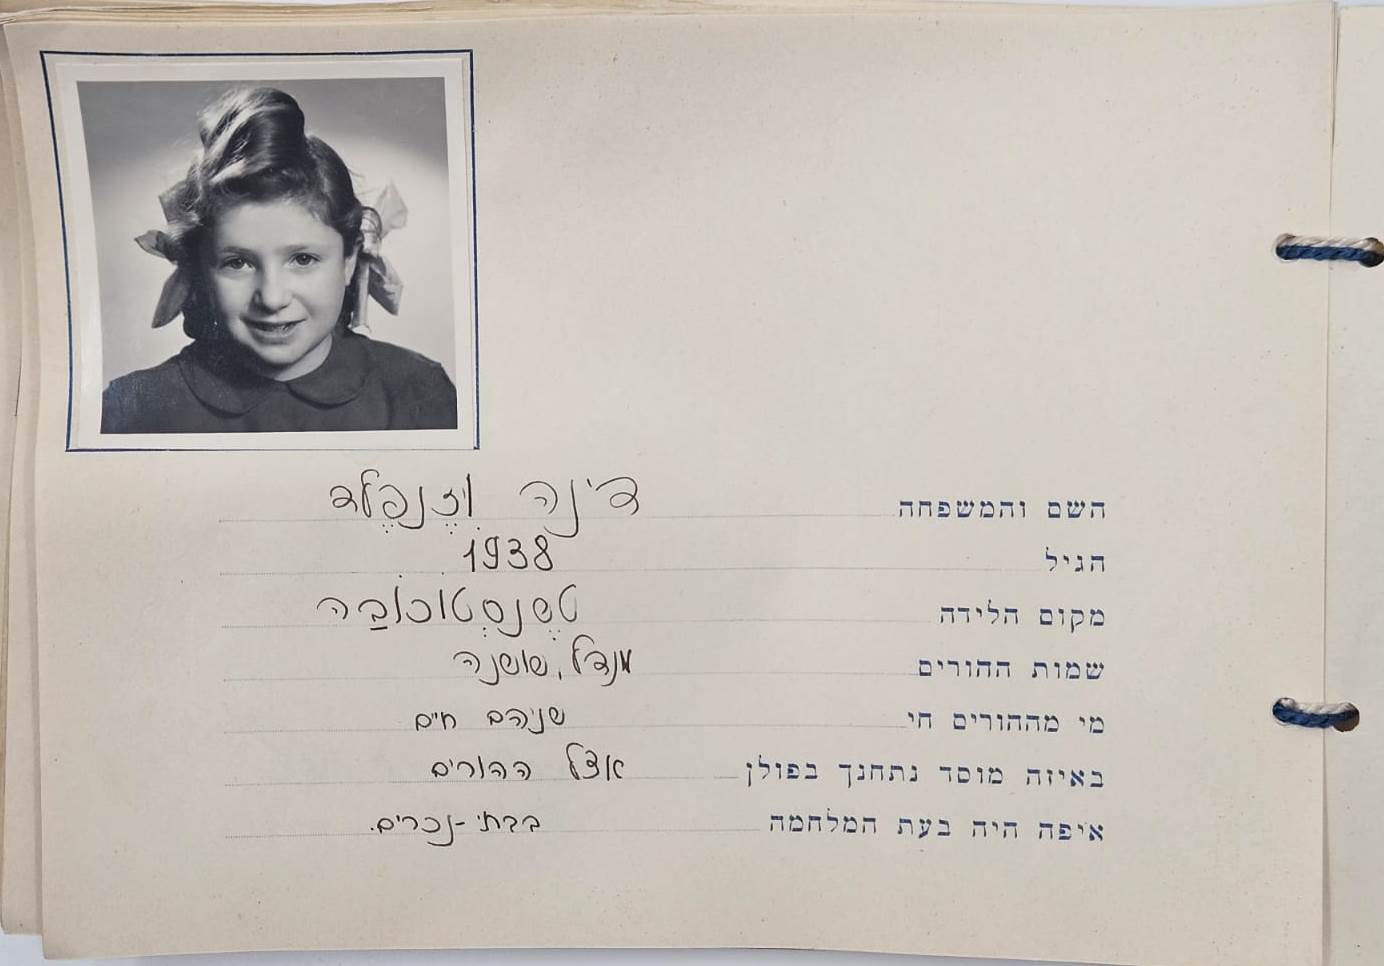 השם והמשפחה דינה וִיזֶנְפֶלד
הגיל 1938
מקום הלידה טשֶנסְטוֹכוֹבַה
שמות ההורים מנדל, שושנה
מי מההורים חי שניהם חיים
באיזה מוסד נתחנך בפולן אצל ההורים
איפה היה בעת המלחמה בבתי-נכרים.